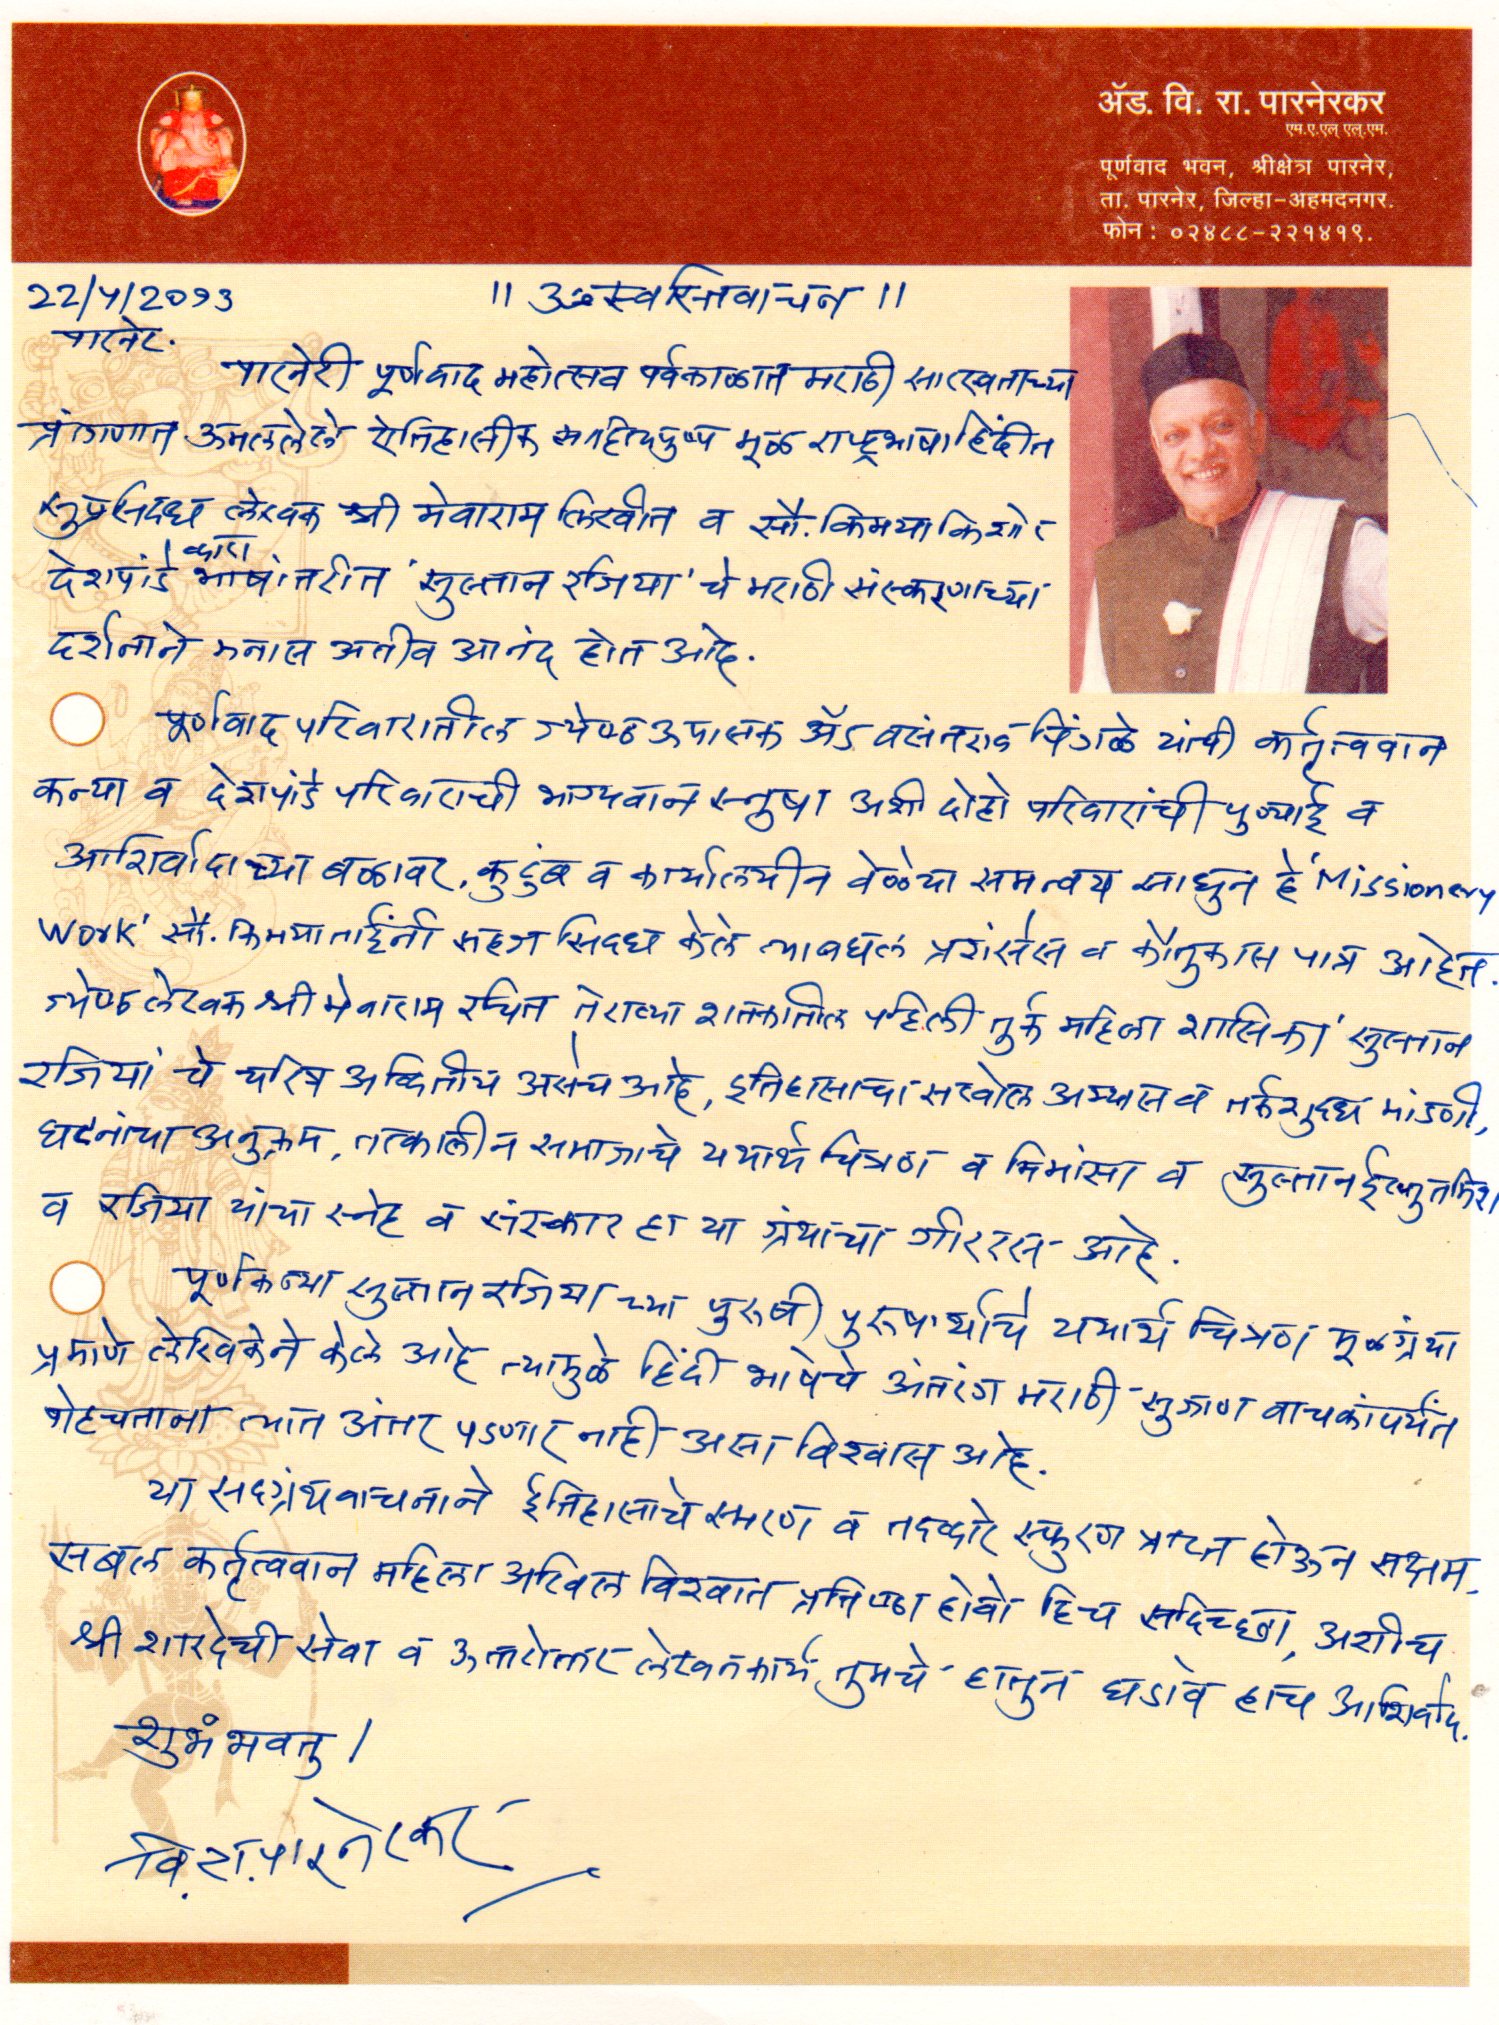 ॲड. वि. रा. पारनेरकर
एम.ए.एल् एल्.एम.
पूर्णवाद भवन, श्रीक्षेत्र पारनेर,
ता. पारनेर, जिल्हा-अहमदनगर.
फोन : ०२४८८-२२१४१९.
22/५/2०१३
॥ ॐ स्वस्तिवाचन ॥
पारनेर.
पारनेरी पूर्णवाद महोत्सव पर्वकाळात मराठी सारस्वताच्या
प्रांगणात उमललेले ऐतिहासीक साहित्यपुष्प मूळ राष्ट्रभाषा हिंदीत
सुप्रसिध्द लेखक श्री मेवाराम लिखीत व सौ. किमया किशोर
देशपांडे द्वारा भाषांतरीत 'सुल्तान रजिया' चे मराठी संस्करणाच्या
दर्शनाने मनास अतीव आनंद होत आहे.
पूर्णवाद परिवारातील ज्येष्ठ उपासक ॲड वसंतराव पिंगळे यांची कर्तृत्ववान
कन्या व देशपांडे परिवाराची भाग्यवान स्नुषा अशी दोहो परिवारांची पुण्याई व
आशिर्वादाच्या बळावर, कुटुंब व कार्यालयीन वेळेचा समन्वय साधुन हे 'Missionery
Work' सौ. किमयाताईंनी सहज सिध्द केले त्याबद्दल प्रशंसेस व कौतुकास पात्र आहेत.
ज्येष्ठ लेखक श्री मेवाराम रचित तेराव्या शतकातील पहिली तुर्क महिला शासिका 'सुल्तान
रजिया' चे चरित्र अद्वितीय असेच आहे, इतिहासाचा सखोल अभ्यास व तर्कशुध्द मांडणी,
घटनांचा अनुक्रम, तत्कालीन समाजाचे यथार्थ चित्रण व मिमांसा व सुल्तान ईल्तुतमिश
व रजिया यांचा स्नेह व संस्कार हा या ग्रंथाचा गौररस आहे.
पूर्णकन्या सुल्तान रजिया च्या पुरुषी पुरुषार्थाचे यथार्थ चित्रण मूळग्रंथा
प्रमाणे लेखिकेने केले आहे त्यामुळे हिंदी भाषेचे अंतरंग मराठी सुजाण वाचकांपर्यंत
पोहचताना त्यात अंतर पडणार नाही असा विश्वास आहे.
या सदग्रंथवाचनाने ईतिहासाचे स्मरण व तदव्दारे स्फुरण प्राप्त होऊन सक्षम,
सबल कर्तृत्ववान महिला अखिल विश्वात प्रतिष्ठा होवो हिच सदिच्छा, अशीच
श्री शारदेची सेवा व उत्तरोत्तर लेखनकार्य तुमचे हातुन घडावे हाच आशिर्वाद.
शुभं भवतु।
वि. रा. पारनेरकर